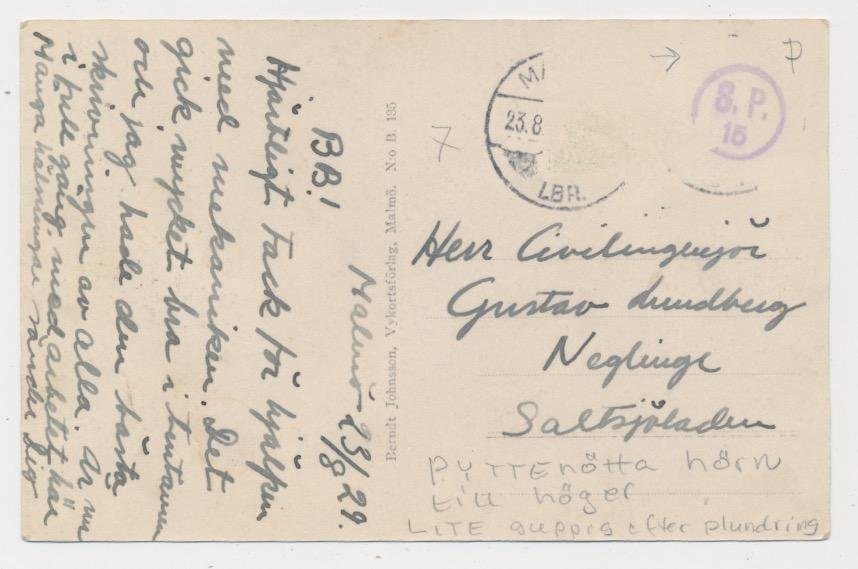 Malmö 23/8 29.
B.B.!
Hjärtligt tack för hjälpen
med mekaniken. Det
gick mycket bra i tentamen
och jag hade den bästa
skrivningen av alla. Är nu
i full gång med arbetet här
Många hälsningar sänder Dig
Berndt Johnsson, Vykortsförlag, Malmö. N:o B. 135
7
MA
23.8
LBR.
S.P.
15
P
Herr Civilingenjör
Gustav Lundberg
Neglinge
Saltsjöbaden
PYTTEnötta hörn
till höger
LITE guppig efter plundring